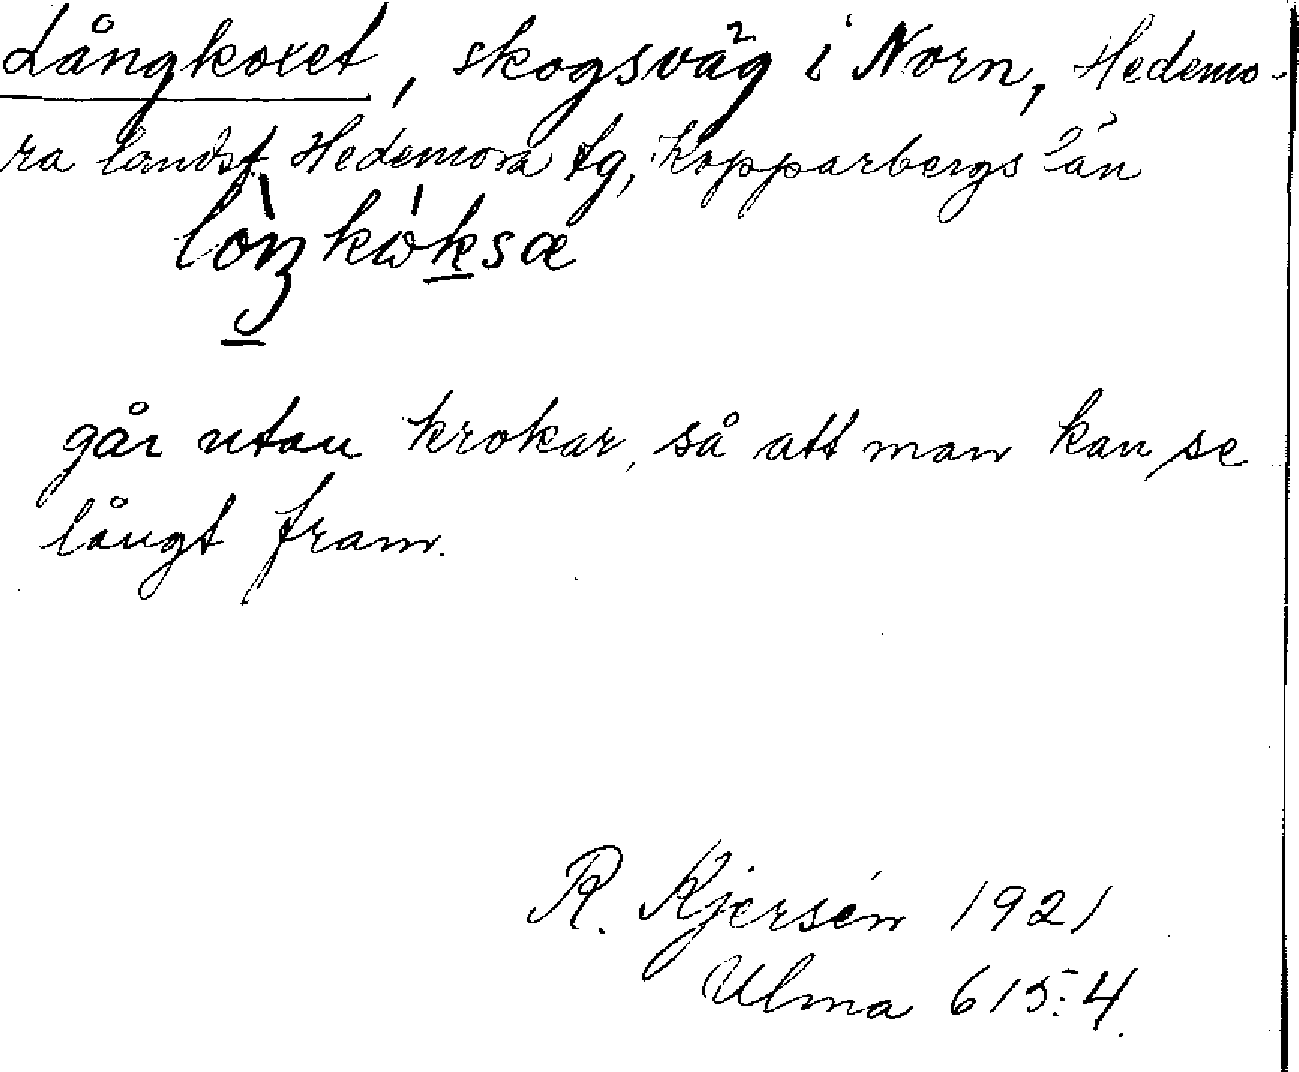 Långkoxet, skogsväg i Norn, Hedemo-
ra landsf. Hedemora tg, Kopparbergs län
går utan krokar, så att man kan se
långt fram.
R. Kjersén 1921
Ulma 615:4.